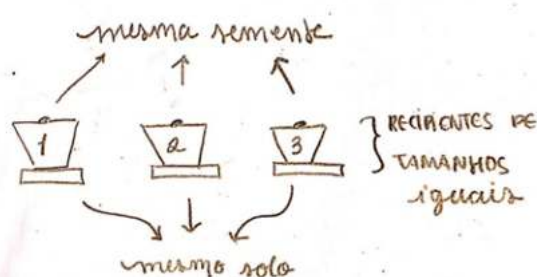 mesma semente
1 2 3
RECIPIENTES DE
TAMANHOS
iguais
mesmo solo